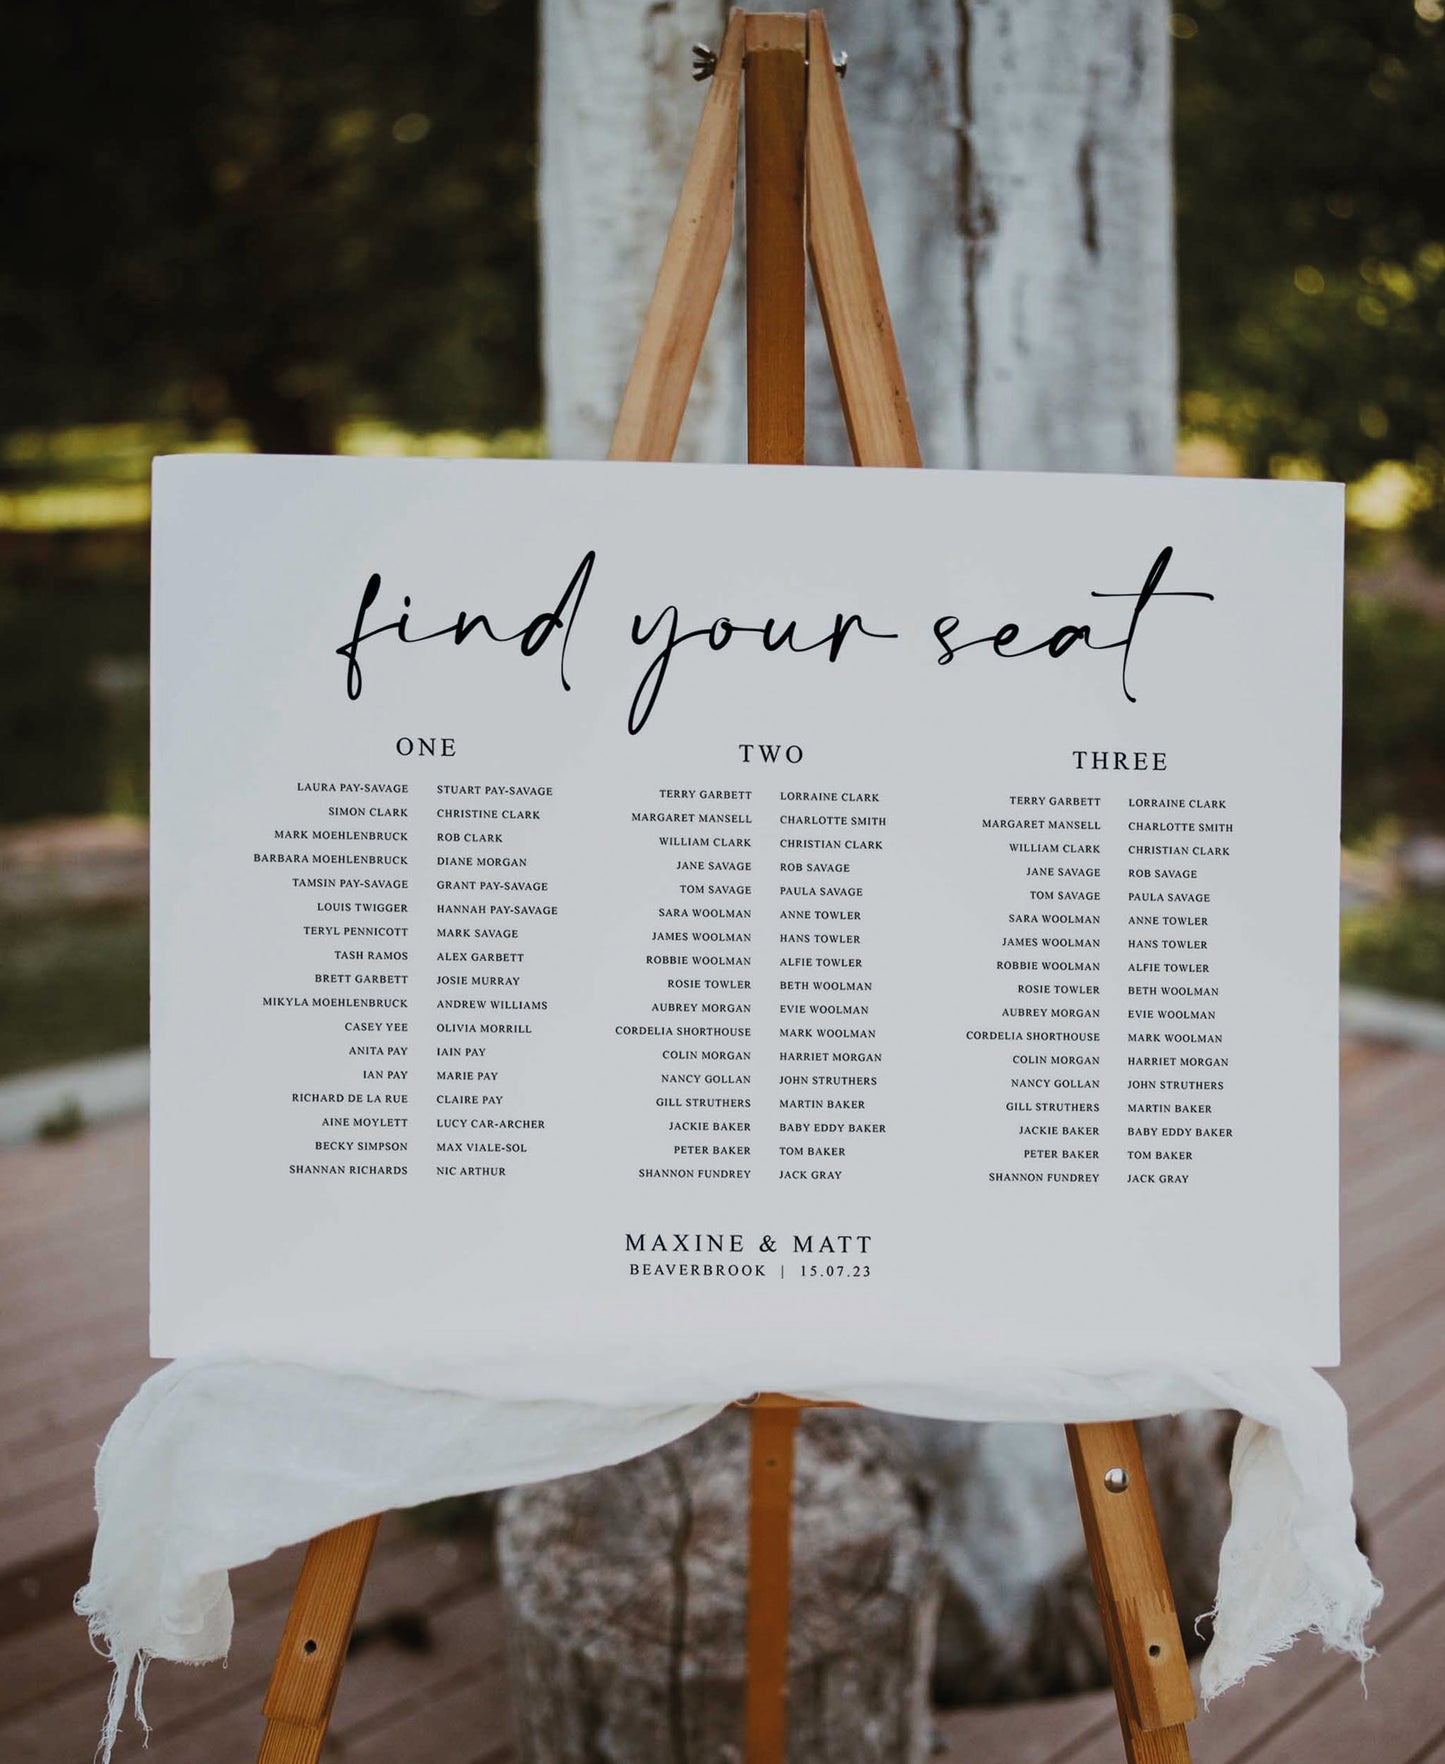 find your seat
ONE
LAURA PAY-SAVAGE STUART PAY-SAVAGE
SIMON CLARK CHRISTINE CLARK
MARK MOEHLENBRUCK ROB CLARK
BARBARA MOEHLENBRUCK DIANE MORGAN
TAMSIN PAY-SAVAGE GRANT PAY-SAVAGE
LOUIS TWIGGER HANNAH PAY-SAVAGE
TERYL PENNICOTT MARK SAVAGE
TASH RAMOS ALEX GARBETT
BRETT GARBETT JOSIE MURRAY
MIKYLA MOEHLENBRUCK ANDREW WILLIAMS
CASEY YEE OLIVIA MORRILL
ANITA PAY IAIN PAY
IAN PAY MARIE PAY
RICHARD DE LA RUE CLAIRE PAY
AINE MOYLETT LUCY CAR-ARCHER
BECKY SIMPSON MAX VIALE-SOL
SHANNAN RICHARDS NIC ARTHUR
TWO
TERRY GARBETT LORRAINE CLARK
MARGARET MANSELL CHARLOTTE SMITH
WILLIAM CLARK CHRISTIAN CLARK
JANE SAVAGE ROB SAVAGE
TOM SAVAGE PAULA SAVAGE
SARA WOOLMAN ANNE TOWLER
JAMES WOOLMAN HANS TOWLER
ROBBIE WOOLMAN ALFIE TOWLER
ROSIE TOWLER BETH WOOLMAN
AUBREY MORGAN EVIE WOOLMAN
CORDELIA SHORTHOUSE MARK WOOLMAN
COLIN MORGAN HARRIET MORGAN
NANCY GOLLAN JOHN STRUTHERS
GILL STRUTHERS MARTIN BAKER
JACKIE BAKER BABY EDDY BAKER
PETER BAKER TOM BAKER
SHANNON FUNDREY JACK GRAY
THREE
TERRY GARBETT LORRAINE CLARK
MARGARET MANSELL CHARLOTTE SMITH
WILLIAM CLARK CHRISTIAN CLARK
JANE SAVAGE ROB SAVAGE
TOM SAVAGE PAULA SAVAGE
SARA WOOLMAN ANNE TOWLER
JAMES WOOLMAN HANS TOWLER
ROBBIE WOOLMAN ALFIE TOWLER
ROSIE TOWLER BETH WOOLMAN
AUBREY MORGAN EVIE WOOLMAN
CORDELIA SHORTHOUSE MARK WOOLMAN
COLIN MORGAN HARRIET MORGAN
NANCY GOLLAN JOHN STRUTHERS
GILL STRUTHERS MARTIN BAKER
JACKIE BAKER BABY EDDY BAKER
PETER BAKER TOM BAKER
SHANNON FUNDREY JACK GRAY
MAXINE & MATT
BEAVERBROOK | 15.07.23